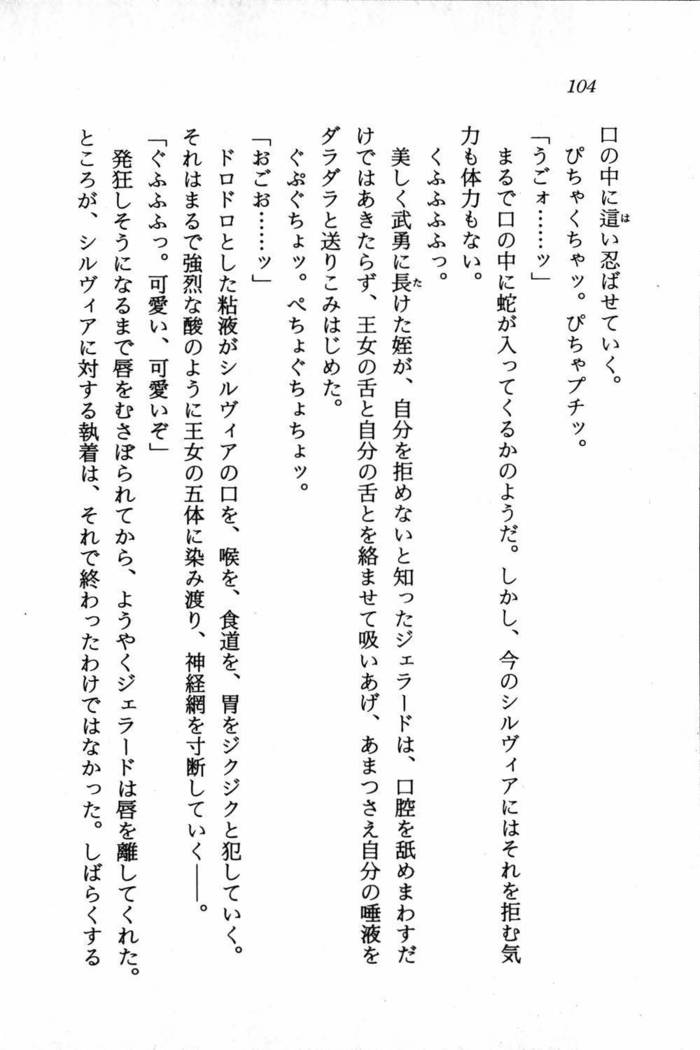 104
口の中に這い忍ばせていく。
ぴちゃくちゃッ。ぴちゃプチッ。
「うごォ……ッ」
まるで口の中に蛇が入ってくるかのようだ。しかし、今のシルヴィアにはそれを拒む気
力も体力もない。
くふふふふっ。
美しく武勇に長けた姪が、自分を拒めないと知ったジェラードは、口腔を舐めまわすだ
けではあきたらず、王女の舌と自分の舌とを絡ませて吸いあげ、あまつさえ自分の唾液を
ダラダラと送りこみはじめた。
ぐぷぐちょッ。ぺちょぐちょちょッ。
「おごお……ッ」
ドロドロとした粘液がシルヴィアの口を、喉を、食道を、胃をジクジクと犯していく。
それはまるで強烈な酸のように王女の五体に染み渡り、神経網を寸断していく――。
「ぐふふふっ。可愛い、可愛いぞ」
発狂しそうになるまで唇をむさぼられてから、ようやくジェラードは唇を離してくれた。
ところが、シルヴィアに対する執着は、それで終わったわけではなかった。しばらくする